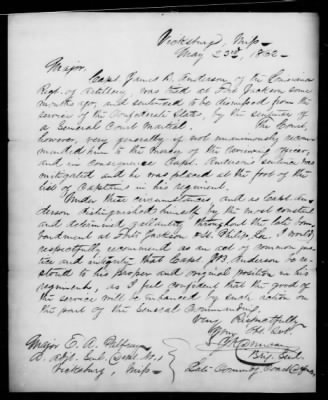 Vicksburg, Miss-
May 23rd, 1862-
Major.
Capt. James B. Anderson, of the Louisiana
Regt. of Artillery, was tried at Fort Jackson some
months ago, and sentenced to be dismissed from the
service of the Confederate States, by the sentence of
a General Court Martial. The Court,
however, very generally if not unanimously recom-
mended him to the mercy of the reviewing officer,
and in consequence Capt. Anderson's sentence was
mitigated and he was placed at the foot of the
list of Captains in his regiment.
Under these circumstances, and as Capt. An-
derson distinguished himself by the most constant
and determined gallantry throughout the late bom-
bardment of Forts Jackson and St. Philip, La. I would
respectfully recommend as an act of common jus-
tice and integrity that Capt. J.B. Anderson be re-
stored to his proper and original position in his
regiment, as I feel confident that the good of
the service will be enhanced by such action on
the part of the General Commanding.
Very Respectfully
Your Obt. Servt.
J.K. Duncan
Brig. Genl.
Late Commdg Coast Defences
Major E. A. Palfrey
A. Adjt. Genl. Dept. No. 1
Vicksburg, Miss-